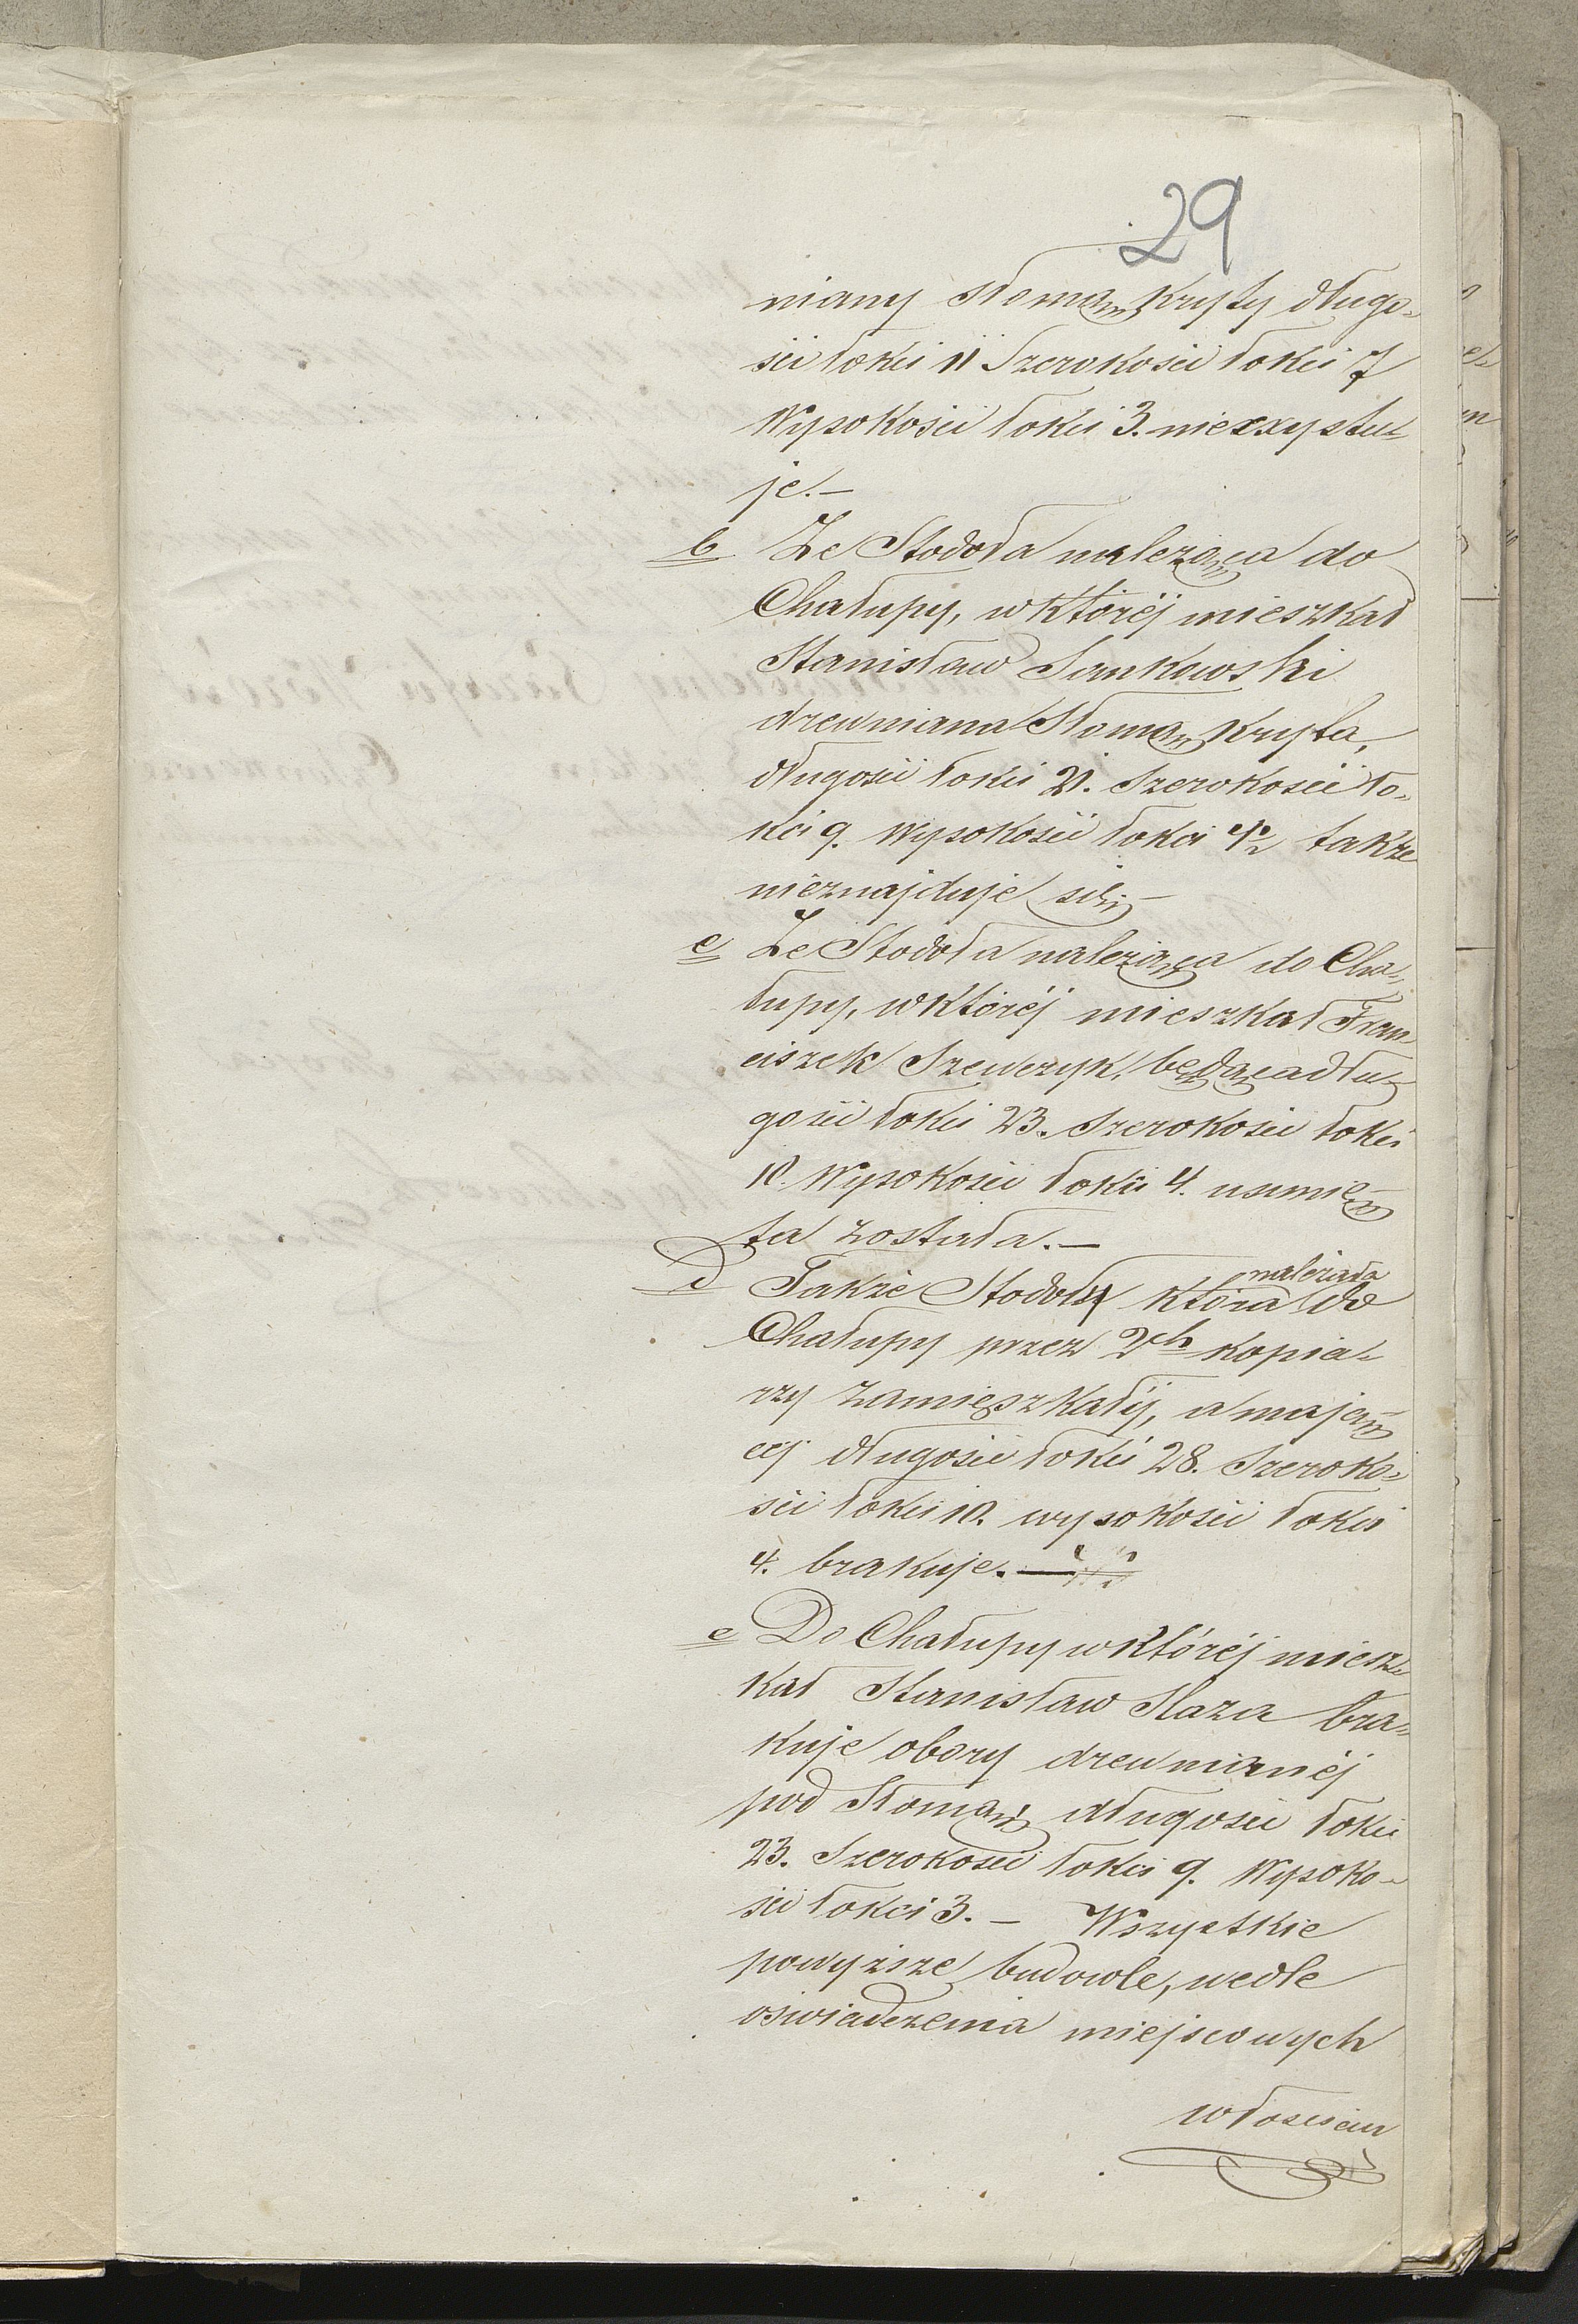 29
niany słomą kryty długo-
ści łokci 11 Szerokości łokci 7
Wysokości łokci 3. nieexystu-
je.—
b Że Stodoła należąca do
Chałupy, w któréj mieszkał
Stanisław Jankowski
drewniana Słomą kryta,
długości łokci 21. Szerokości ło-
kci 9. Wysokości łokci 4½ także
nieznajduje się—
c Że Stodoła należąca do Cha-
łupy, w któréj mieszkał Fran
ciszek Szewczyk, będąca dłu-
gości łokci 23. Szerokości łokci
10. Wysokości łokci 4. usunię-
ta została.—
d Także Stodoły która należała do
Chałupy przez 2ch kopia-
rzy zamieszkałéj, a mają-
céj długości łokci 28. Szeroko-
ści łokci 10. wysokości łokci
4. brakuje.—
e Do Chałupy w którój miesz-
kał Stanisław Słaza bra-
kuje obory drewnianéj
pod Słomą, długości łokci
23. Szerokości łokci 9. Wysoko-
ści łokci 3.— Wszystkie
powyższe budowle, wedle
oświadczenia miejscowych
włościan